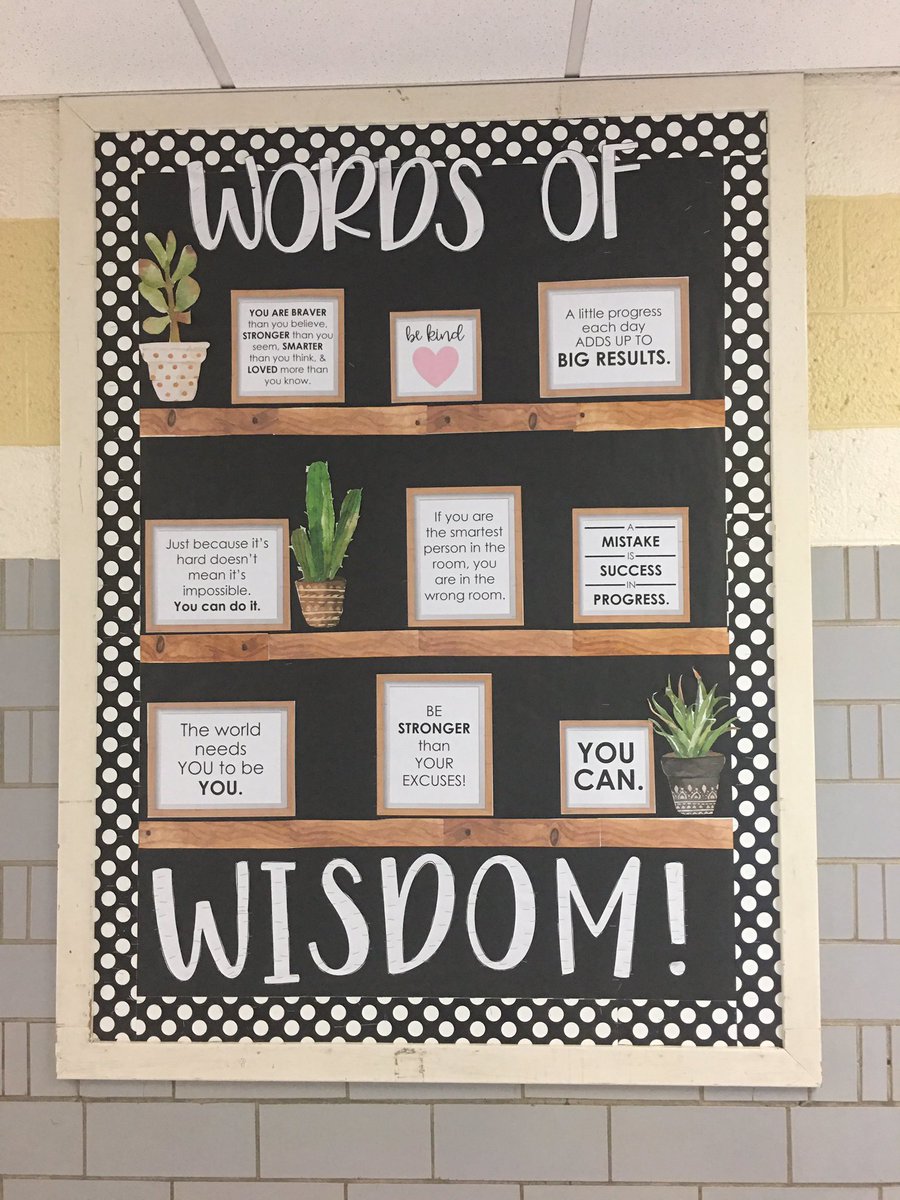 WORDS OF
YOU ARE BRAVER
than you believe,
STRONGER than you
seem, SMARTER
than you think, &
LOVED more than
you know.
be kind
A little progress
each day
ADDS UP TO
BIG RESULTS.
Just because it's
hard doesn't
mean it's
impossible.
You can do it.
If you are
the smartest
person in the
room, you
are in the
wrong room.
A
MISTAKE
IS
SUCCESS
IN
PROGRESS.
The world
needs
YOU to be
YOU.
BE
STRONGER
than
YOUR
EXCUSES!
YOU
CAN.
WISDOM!